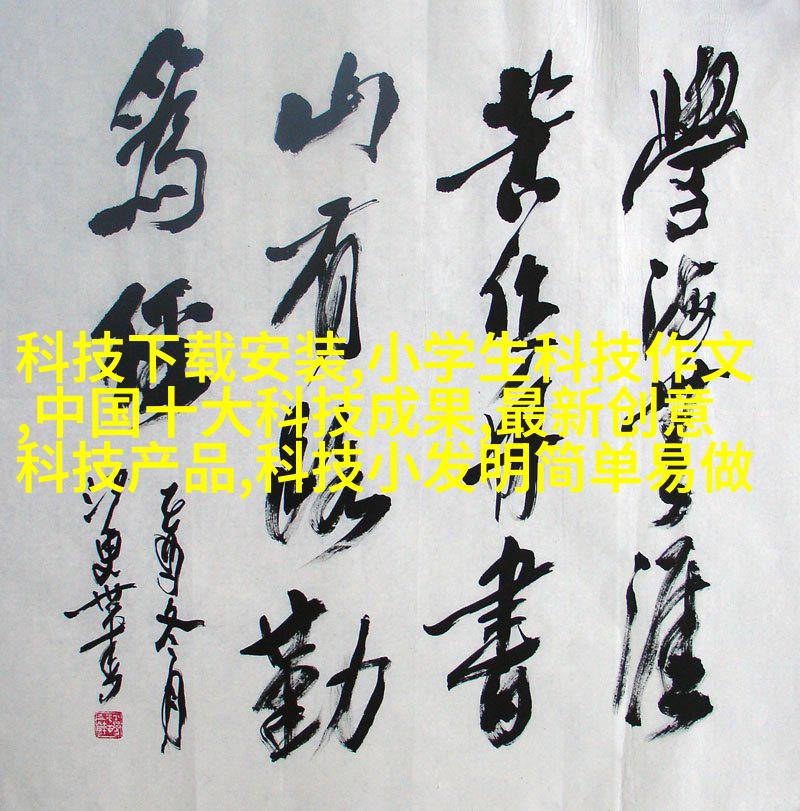 科技下载安装,小学生科技作文
,中国十大科技成果,最新创意
科技产品,科技小发明简单易做
學海無涯
苦作舟書
山有路勤
為徑
乙酉冬月